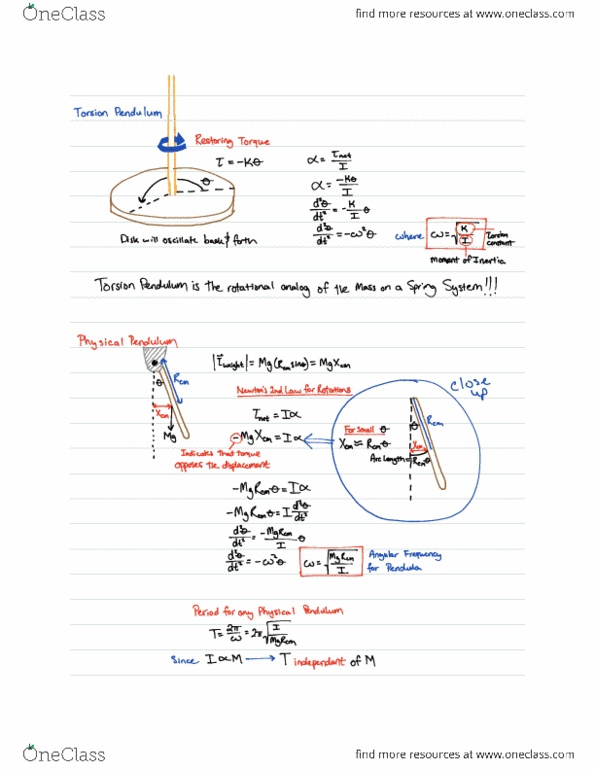 OneClass
find more resources at www.oneclass.com
Torsion Pendulum
Restoring Torque
τ = -Kθ
θ
Disk will oscillate back & forth
α = τnet/I
α = -Kθ/I
d²θ/dt² = -K/I θ
d²θ/dt² = -ω²θ
where ω = √K/I
Torsion constant
moment of Inertia
Torsion Pendulum is the rotational analog of the Mass on a Spring System!!!
Physical Pendulum
θ
Rcm
Xcm
Mg
|τweight| = Mg(Rcm sinθ) = MgXcm
Newton's 2nd Law for Rotations
τnet = Iα
-MgXcm = Iα
Indicates that torque
opposes the displacement
close up
For Small θ
Xcm ≈ Rcmθ
Arc Length = Rcmθ
θ
Rcm
Xcm
-MgRcmθ = Iα
-MgRcmθ = I d²θ/dt²
d²θ/dt² = -MgRcm/I θ
d²θ/dt² = -ω²θ
ω = √MgRcm/I
Angular Frequency
for Pendula
Period for any Physical Pendulum
T = 2π/ω = 2π√I/MgRcm
Since I∝M → T independant of M
OneClass
find more resources at www.oneclass.com